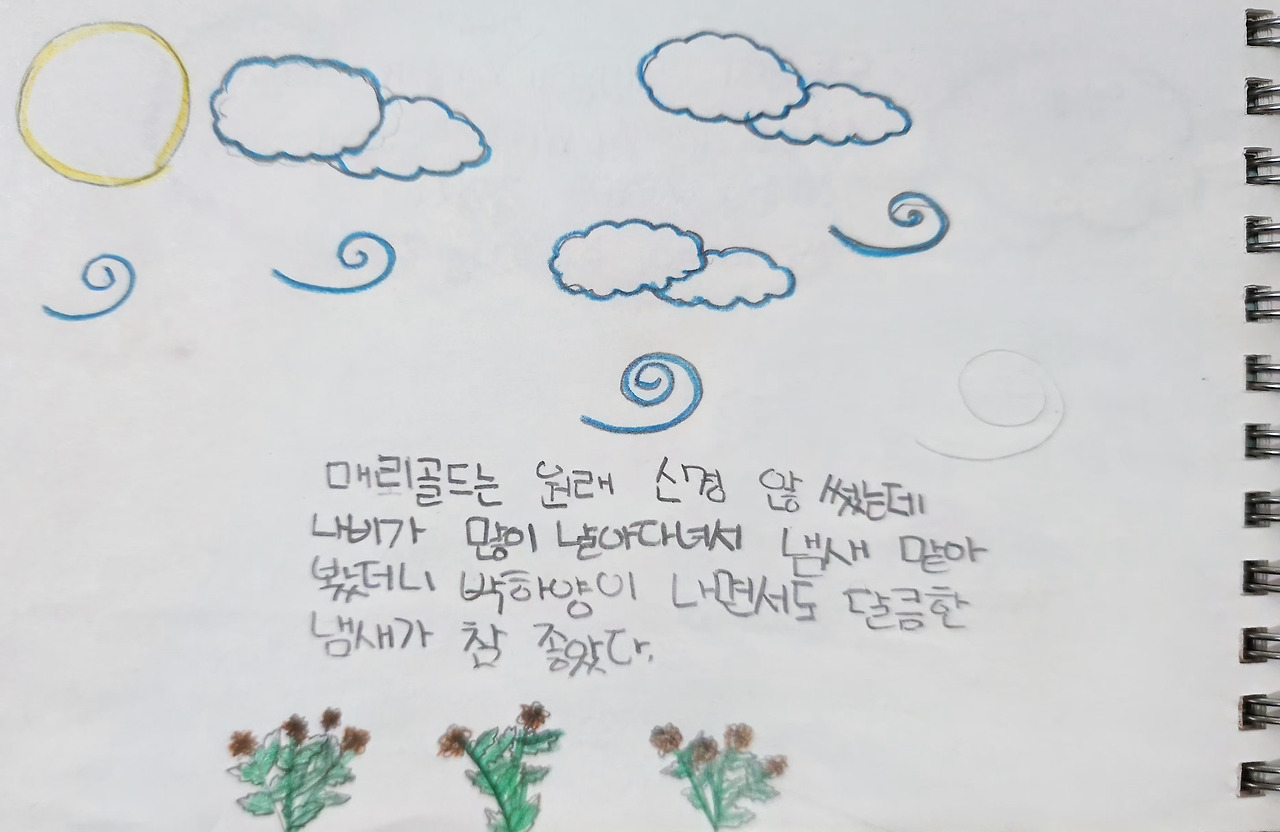 매리골드는 원래 신경 않 썼는데
나비가 많이 날아다녀서 냄새 맡아
봤더니 박하양이 내면서도 달큼한
냄새가 참 좋았다.